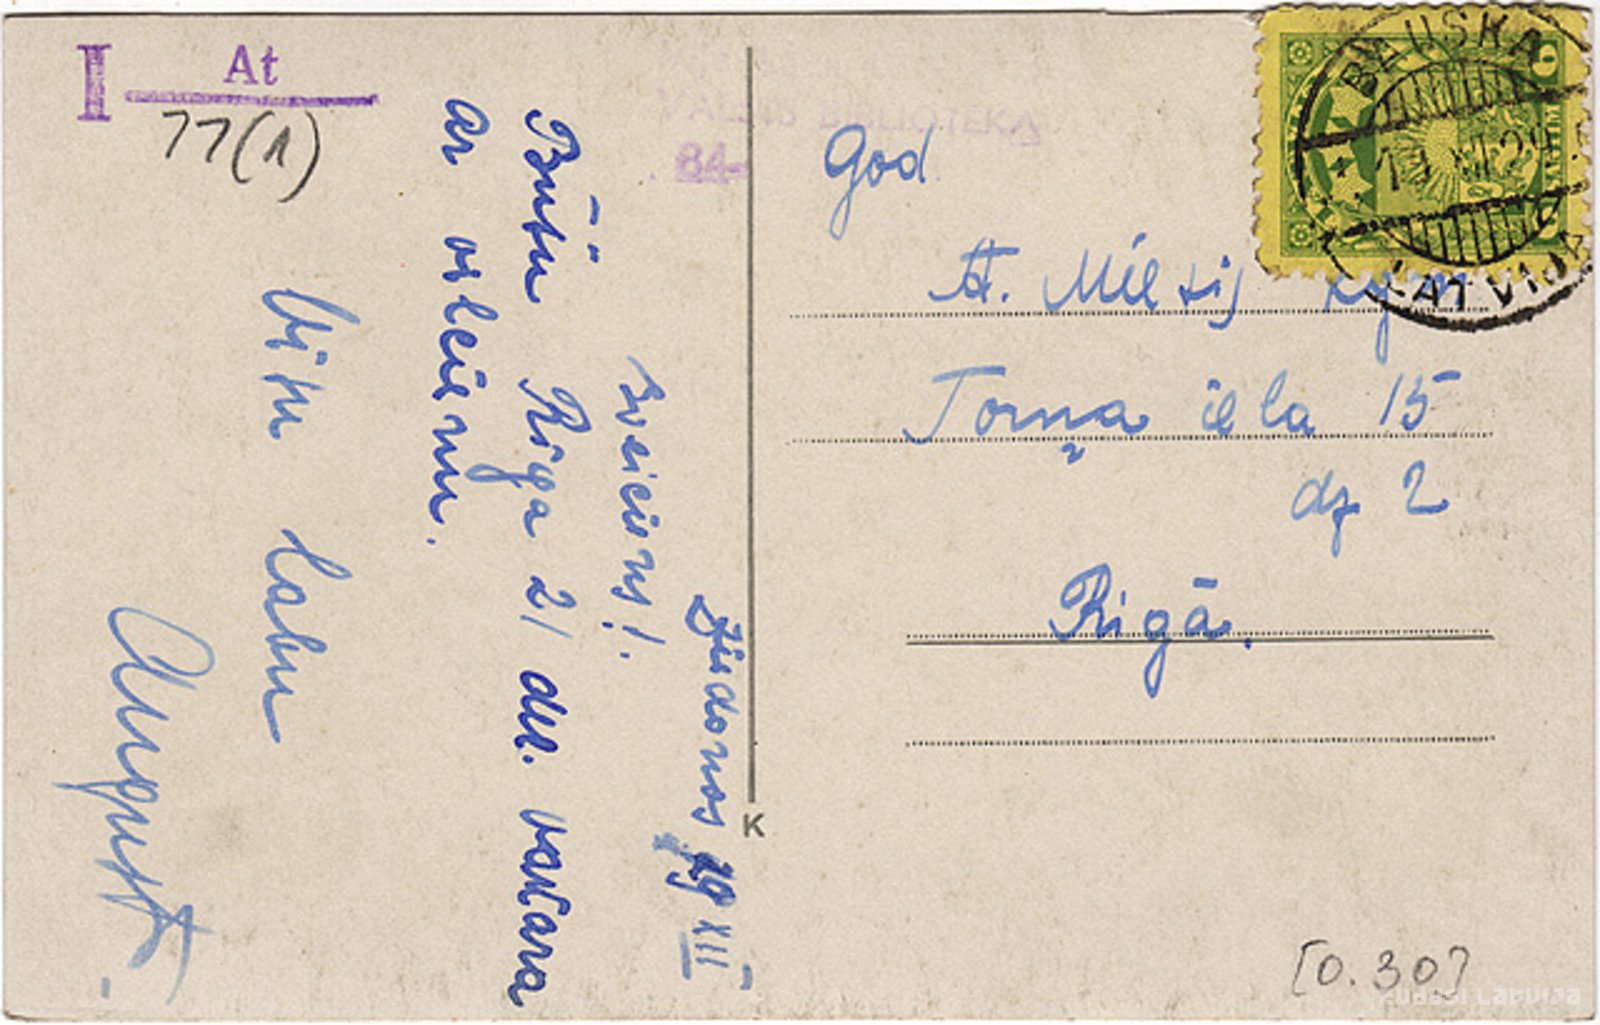 I At
77(1)
VALSTS BIBLIOTEKA
84-
19 XII
Sveiciens!
Būšu Rīga 21 dec. vakara
ar vilcienu.
Visu labu
August
K
God.
A.
Torņa iela 15
dz 2
Rīgā.
BAUSKA
LATVIJA
6
[0.30]
Zudusi Latvija